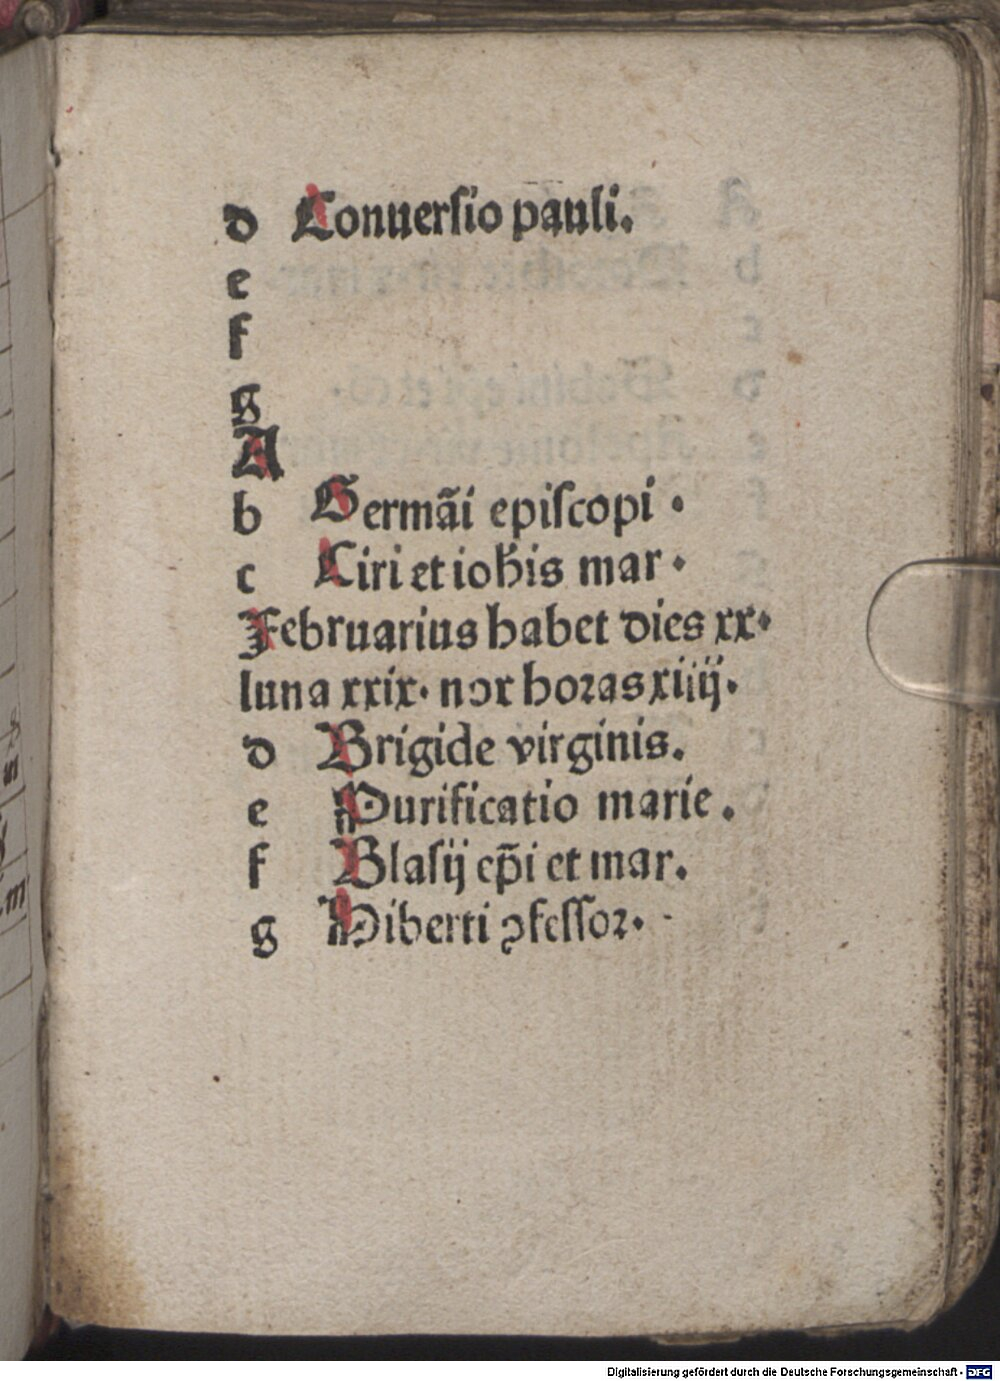 d Conuerſio pauli.
e
f
g
A
b Germãi epiſcopi ·
c Ciri et ioħis mar ·
Februarius habet dies xx·
luna xxix· nox horas xiiij·
d Brigide virginis.
e Purificatio marie .
f Blaſij ep̃i et mar.
g Hiberti ꝯfeſſor·
Digitalisierung gefördert durch die Deutsche Forschungsgemeinschaft - DFG